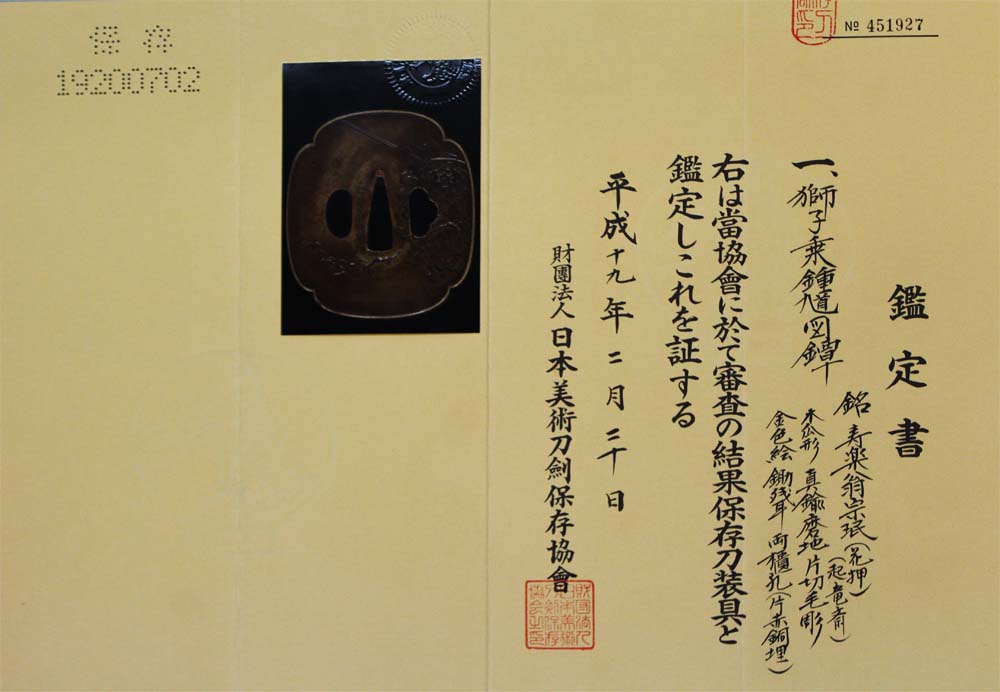 № 451927
鑑定書
一、獅子乗鍾馗図鐔
銘 寿楽翁宗珉(花押)
(起竜斎)
木瓜形 真鍮磨地 片切毛彫
金色絵 鋤残耳 両櫃孔(片赤銅埋)
右は當協會に於て審査の結果保存刀装具と
鑑定しこれを証する
平成十九年二月二十日
財團法人 日本美術刀劍保存協會
保存
19200702